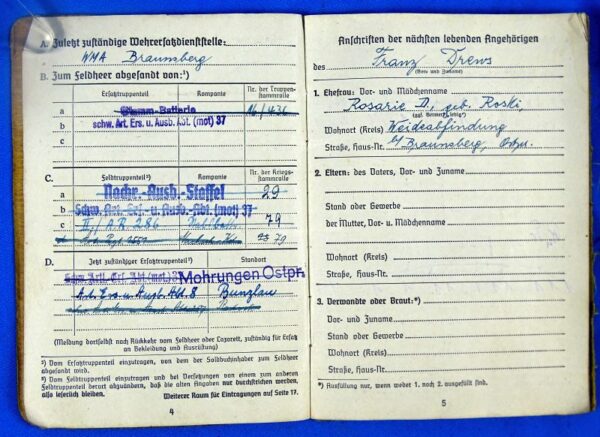 A. Zuletzt zuständige Wehrersatzdienststelle:
WMA Braunsberg
B. Zum Feldheer abgesandt von:¹)
Ersatztruppenteil Kompanie Nr. der Truppenstammrolle
a Stamm-Batterie
b schw. Art. Ers. u. Ausb. Abt. (mot) 37
c
C. Feldtruppenteil²) Kompanie Nr. der Kriegsstammrolle
a Nachr.-Ausb.-Staffel 29
b Schw. Art.-Ers.- u. Ausb.-Abt. (mot) 37
c II./A.R. 286 79
79
D. Jetzt zuständiger Ersatztruppenteil³) Standort
Schw. Artl. Ers. Abt. (mot) 3 Mohrungen Ostpr.
Art. Ers. u. Ausb. Abt. 8 Bunzlau
(Meldung dortselbst nach Rückkehr vom Feldheer oder Lazarett, zuständig für Ersatz
an Bekleidung und Ausrüstung)
¹) Vom Ersatztruppenteil einzutragen, von dem der Soldbuchinhaber zum Feldheer
abgesandt wird.
²) Vom Feldtruppenteil einzutragen und bei Versetzungen von einem zum anderen
Feldtruppenteil derart abzuändern, daß die alten Angaben nur durchstrichen werden,
also leserlich bleiben.
Weiterer Raum für Eintragungen auf Seite 17.
4
Anschriften der nächsten lebenden Angehörigen
des Franz Drews
(Vor- und Zuname)
1. Ehefrau: Vor- und Mädchenname
Rosarie D., geb. Roski,
(ggf. Vermerk „ledig“)
Wohnort (Kreis) Weideabfindung
Straße, Haus-Nr. b/ Braunsberg, Ostpr.
2. Eltern: des Vaters, Vor- und Zuname
Stand oder Gewerbe
der Mutter, Vor- u. Mädchenname
Wohnort (Kreis)
Straße, Haus-Nr.
3. Verwandte oder Braut:*)
Vor- und Zuname
Stand oder Gewerbe
Wohnort (Kreis)
Straße, Haus-Nr.
*) Ausfüllung nur, wenn weder 1. noch 2. ausgefüllt sind.
5